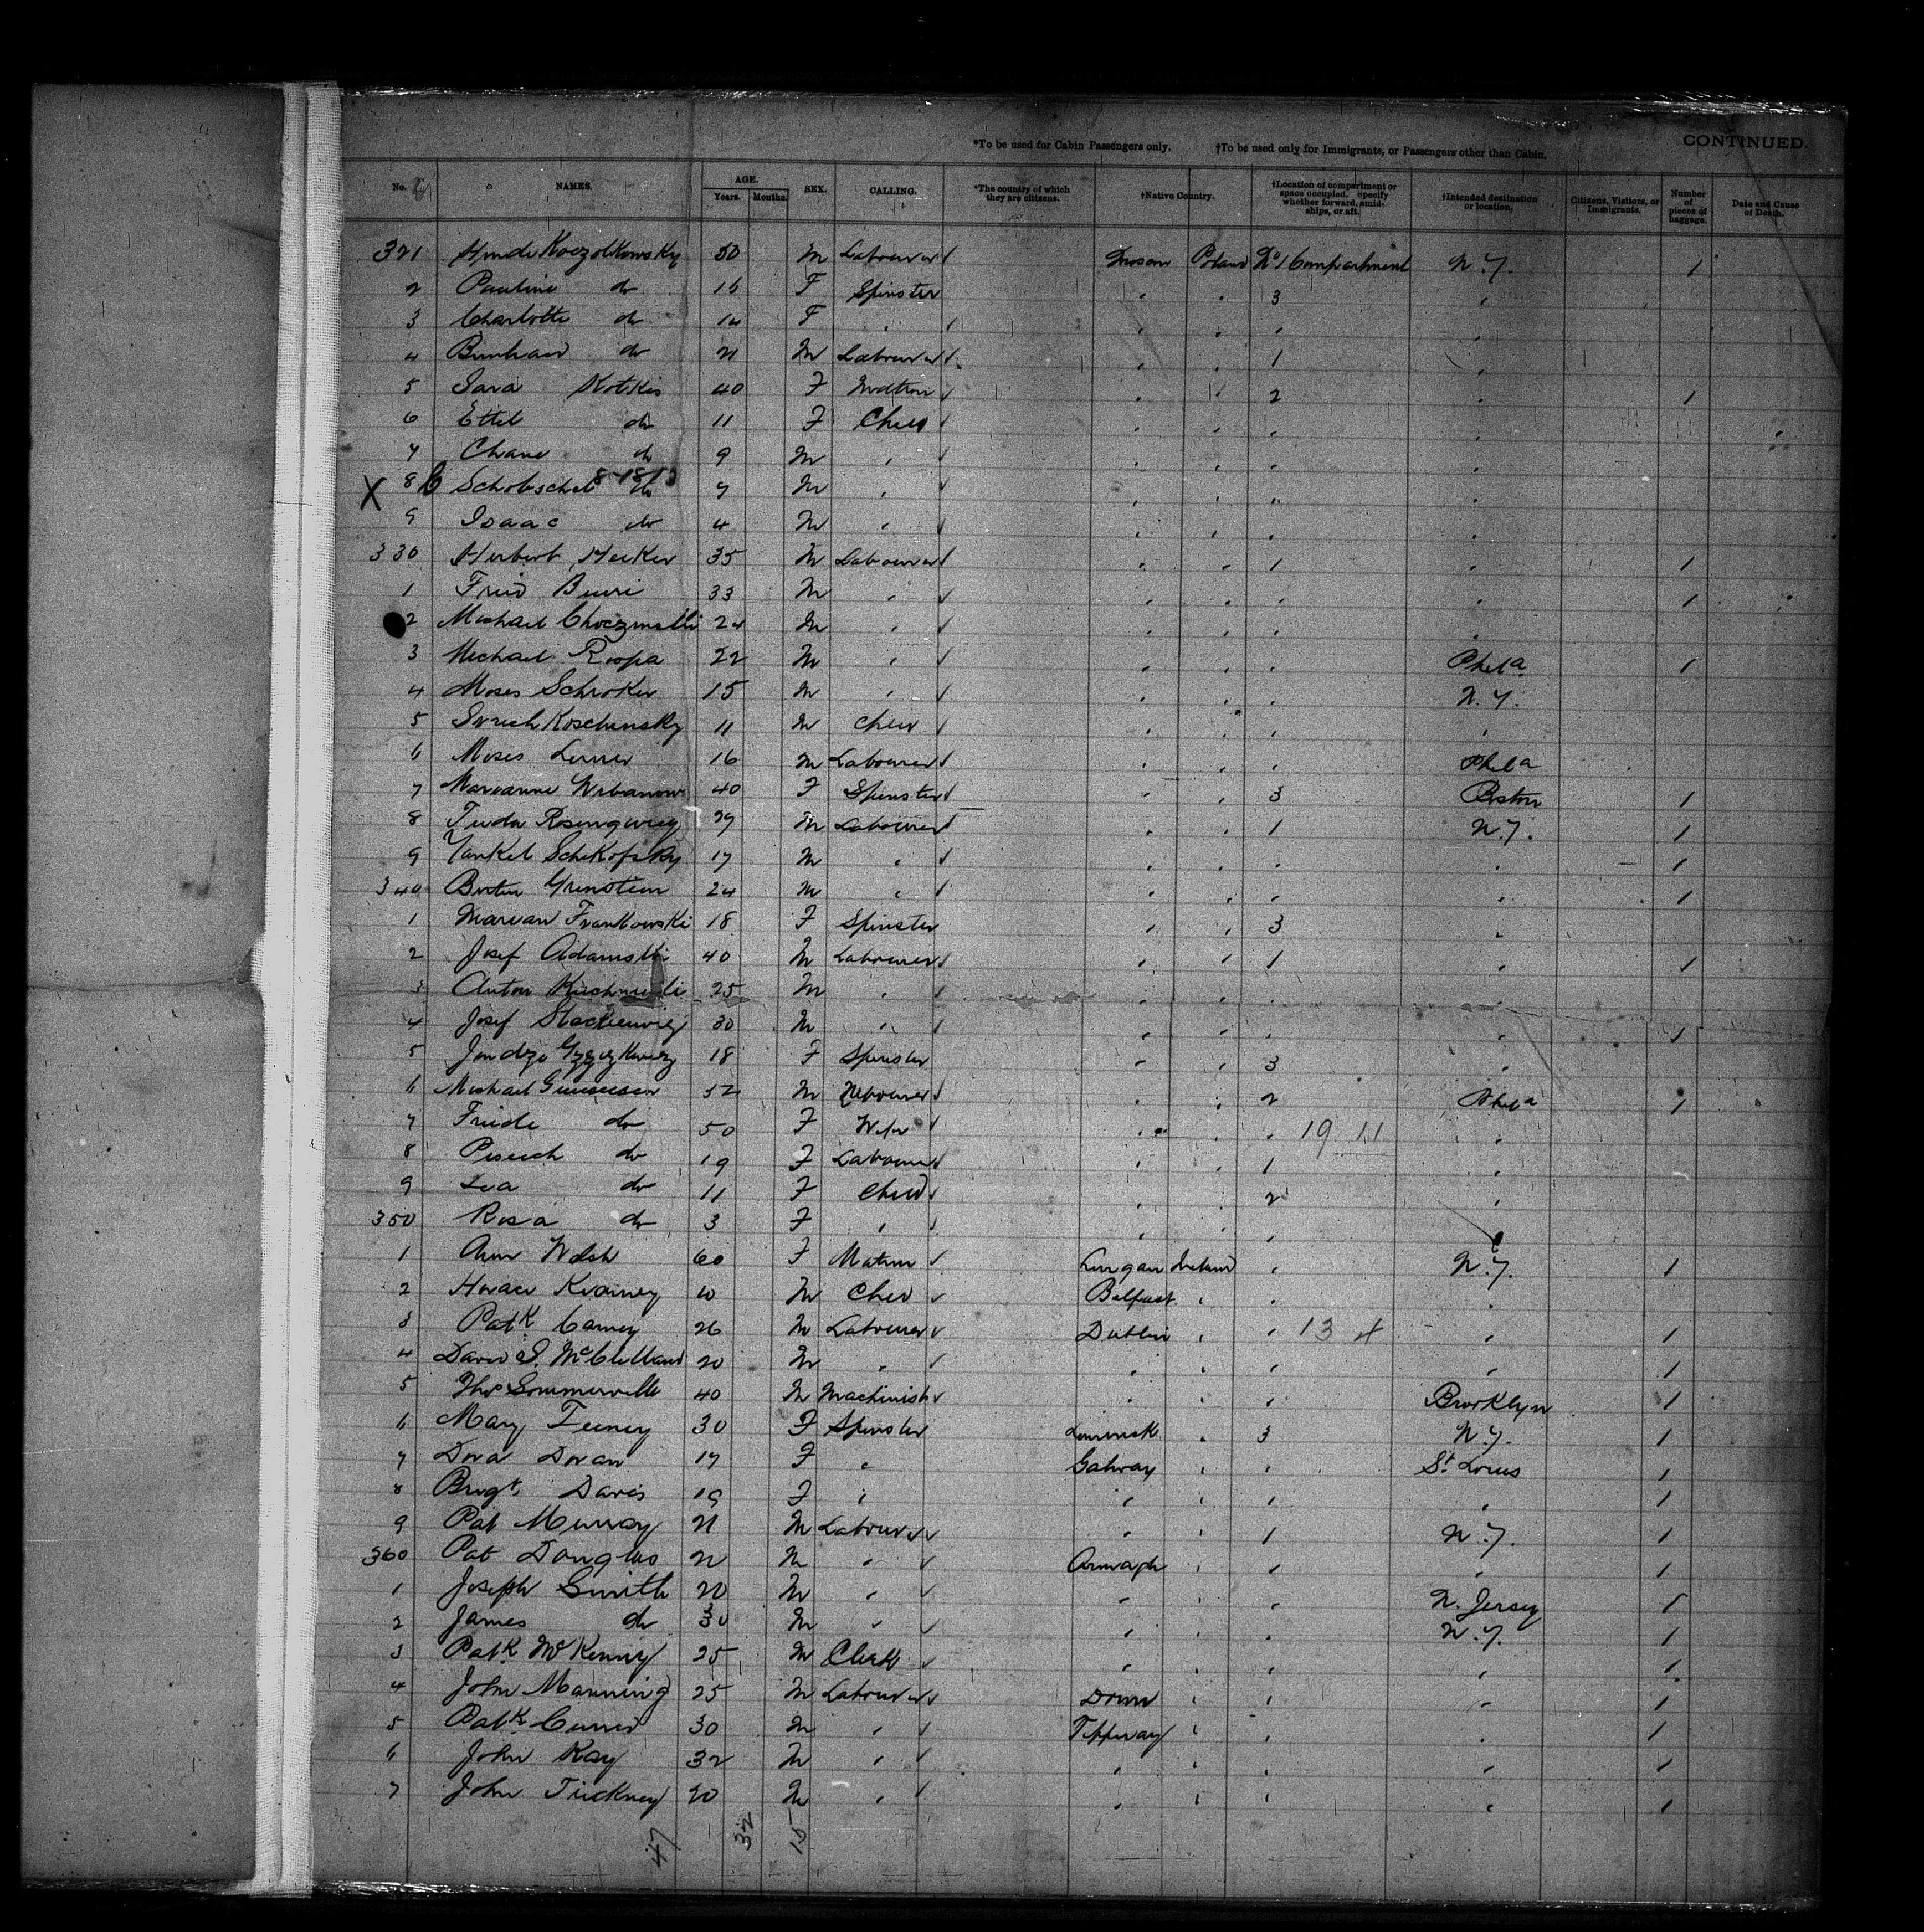 CONTINUED.
*To be used for Cabin Passengers only. †To be used only for Immigrants, or Passengers other than Cabin.
No. NAMES. AGE. Years. Months. SEX. CALLING. *The country of which they are citizens. †Native Country. †Location of compartment or space occupied. Specify whether forward, amidships, or aft. †Intended destination or location. Citizens, Visitors, or Immigrants. Number of pieces of baggage. Date and Cause of Death.
321 M Labourer Poland No 1 Compartment N.Y. 1
2 Pauline do 16 F Spinster " " 3 "
3 Charlotte do 14 F " " " " "
4 do 21 M Labourer " " 1 "
5 Sara Kotkis 40 F Matron " " 2 " 1
6 Ettel do 11 F Child " " " "
7 Chane do 9 M " " " " "
X 8 8-18-13 do 7 M " " " " "
9 Isaac do 4 M " " " " "
330 Herbert Hecker 35 M Labourer " " 1 " 1
1 33 M " " " " " 1
2 Michael 24 M " " " " "
3 Michael Roopa 22 M " " " " Phila 1
4 Moses Schroker 15 M " " " " N.Y.
5 Koschinsky 11 M Child " " " "
6 Moses Lerner 16 M Labourer " " " Phila
7 Marianne 40 F Spinster " " 3 Boston 1
8 29 M Labourer " " 1 N.Y. 1
9 Yankel Schikofsky 17 M " " " " " 1
340 Grinstein 24 M " " " " " 1
1 Marian Frankowski 18 F Spinster " " 3 "
2 Josef Adamski 40 M Labourer " " 1 " 1
3 Anton 25 M " " " " "
4 Josef 30 M " " " " " 1
5 18 F Spinster " " 3 "
6 Michael 52 M Labourer " " 2 Phila 1
7 Friede do 50 F Wife " " " 19 11 "
8 do 19 F Labourer " " 1 "
9 Lea do 11 F Child " " 2 "
350 Rosa do 3 F " " " " "
1 Ann Welsh 60 F Matron Lurgan Ireland " N.Y. 1
2 Horace Kearney 10 M Child Belfast " " "
3 Patk Carney 26 M Labourer Dublin " " 13 4 " 1
4 David S. McClelland 20 M " " " " " 1
5 Thos Sommerville 40 M Machinist " " " Brooklyn 1
6 Mary Feeney 30 F Spinster Limerick " 3 N.Y. 1
7 Dora Doran 17 F " Galway " " St. Louis 1
8 Brigt. Davis 19 F " " " " " 1
9 Pat Murray 21 M Labourer " " 1 N.Y. 1
360 Pat Douglas M " Armagh " " " 1
1 Joseph Smith 20 M " " " " N. Jersey 1
2 James do 30 M " " " " N.Y. 1
3 Patk. McKenny 25 M Clerk " " " " 1
4 John Manning 25 M Labourer Down " " " 1
5 Patk. 30 M " Tipperary " " " 1
6 John Kay 32 M " " " " " 1
7 John Tuckney 20 M " " " " " 1
47 32 15